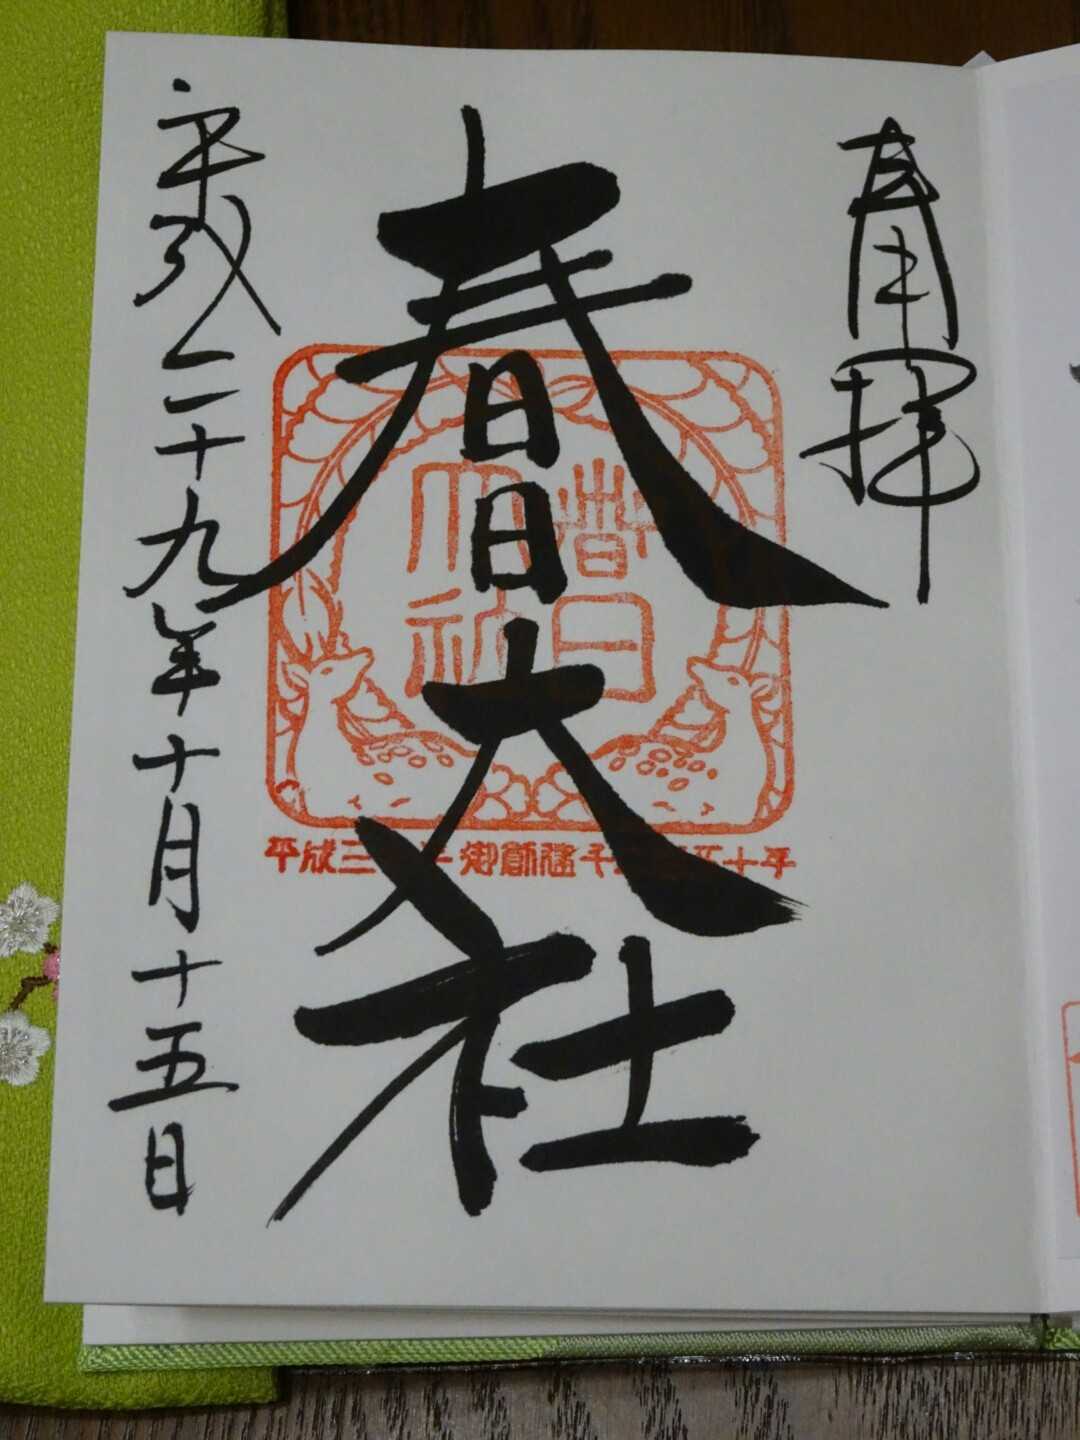 奉拝
春日大社
春日
大社
平成三十年御創建千二百五十年
平成二十九年十月十五日